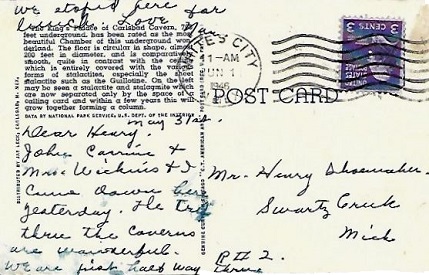 We stoped here for
lunch. Love
May
King's Palace of Carlsbad Cavern, 
feet underground, has been rated as the most
beautiful Chamber of this underground won-
derland. The floor is circular in shape, almost
200 feet in diameter, and is comparatively
smooth, quite in contrast with the ceiling
which is entirely covered with the various
forms of stalactites, especially the sheet
stalactite such as the Guillotine. On the left
may be seen a stalactite and stalagmite which
are now separated only by the space of a
calling card and within a few years this will
grow together forming a column.
DATA BY NATIONAL PARK SERVICE, U.S. DEPT. OF THE INTERIOR
May 31st.
Dear Henry.
John, Corrine &
Mrs Wickins & I
Came down here
yesterday. The Trip
thru the Caverns
are wonderful.
We are just half way
thru
CITY
11-AM
JUN 1
3 CENTS 3
UNITED STATES POSTAGE
POST CARD
Mr. Henry Shoemaker.
Swartz Creek
Mich
R# 2.